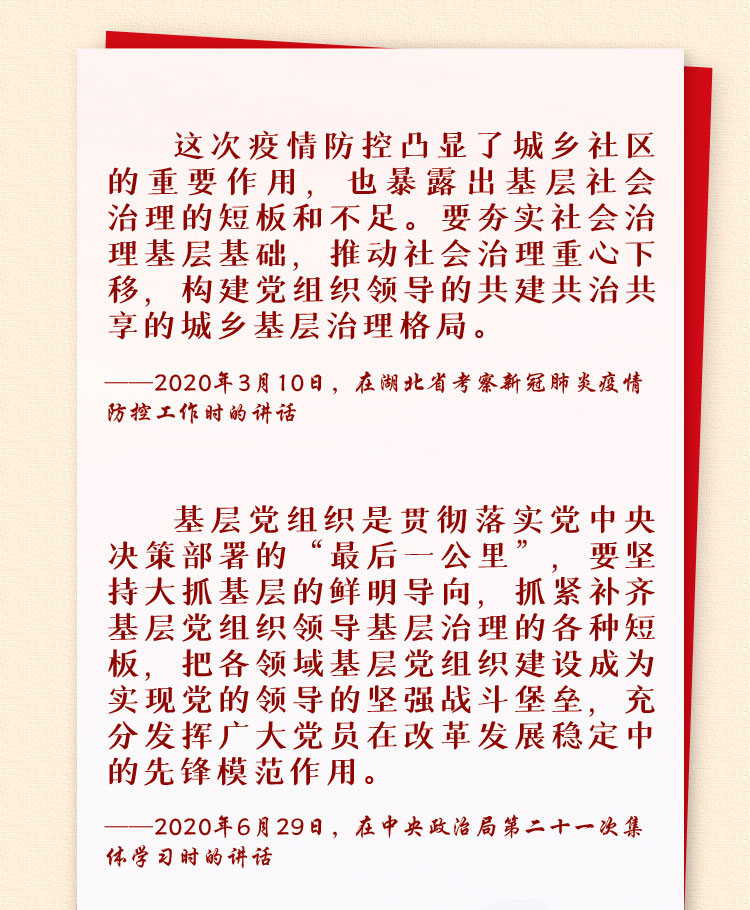 这次疫情防控凸显了城乡社区
的重要作用，也暴露出基层社会
治理的短板和不足。要夯实社会治
理基层基础，推动社会治理重心下
移，构建党组织领导的共建共治共
享的城乡基层治理格局。
——2020年3月10日，在湖北省考察新冠肺炎疫情
防控工作时的讲话
基层党组织是贯彻落实党中央
决策部署的“最后一公里”，要坚
持大抓基层的鲜明导向，抓紧补齐
基层党组织领导基层治理的各种短
板，把各领域基层党组织建设成为
实现党的领导的坚强战斗堡垒，充
分发挥广大党员在改革发展稳定中
的先锋模范作用。
——2020年6月29日，在中央政治局第二十一次集
体学习时的讲话